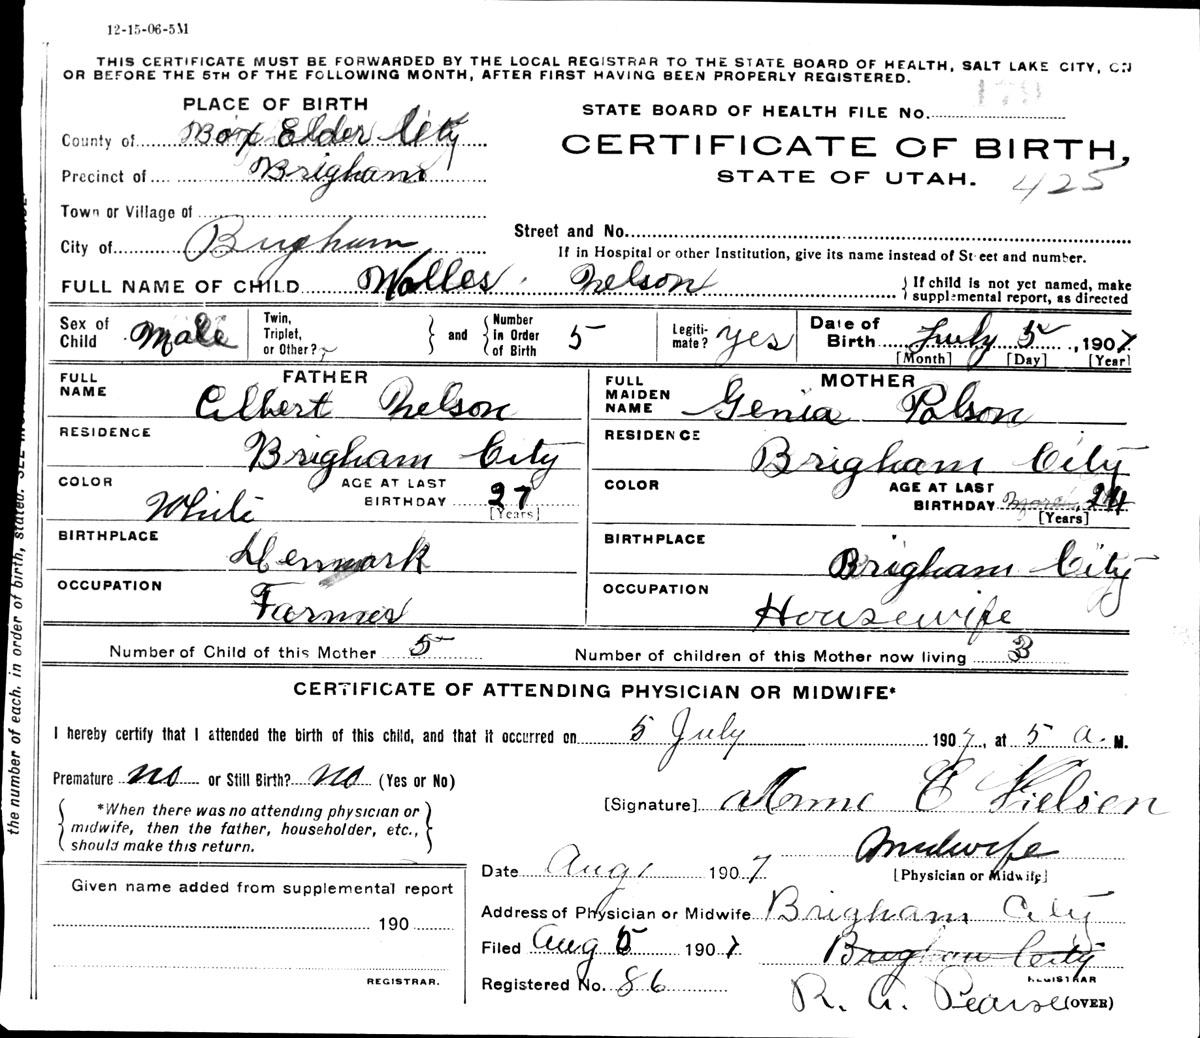 12-15-06-5M
THIS CERTIFICATE MUST BE FORWARDED BY THE LOCAL REGISTRAR TO THE STATE BOARD OF HEALTH, SALT LAKE CITY, ON
OR BEFORE THE 5TH OF THE FOLLOWING MONTH, AFTER FIRST HAVING BEEN PROPERLY REGISTERED.
PLACE OF BIRTH
County of Box Elder City
Precinct of Brigham
Town or Village of
City of Brigham
STATE BOARD OF HEALTH FILE No. 179
CERTIFICATE OF BIRTH,
STATE OF UTAH.
425
Street and No.
If in Hospital or other Institution, give its name instead of Street and number.
FULL NAME OF CHILD Wolles Nelson
If child is not yet named, make supplemental report, as directed
Sex of Child Male
Twin, Triplet, or Other?
and
Number in Order of Birth 5
Legitimate? yes
Date of Birth July 5, 1907
[Month] [Day] [Year]
FATHER
FULL NAME Albert Nelson
RESIDENCE Brigham City
COLOR White
AGE AT LAST BIRTHDAY 27
[Years]
BIRTHPLACE Denmark
OCCUPATION Farmer
MOTHER
FULL MAIDEN NAME Genia Polson
RESIDENCE Brigham City
COLOR
AGE AT LAST BIRTHDAY March 24
[Years]
BIRTHPLACE Brigham City
OCCUPATION Housewife
Number of Child of this Mother 5
Number of children of this Mother now living 3
CERTIFICATE OF ATTENDING PHYSICIAN OR MIDWIFE*
I hereby certify that I attended the birth of this child, and that it occurred on 5 July 1907, at 5 a. M.
Premature no or Still Birth? no (Yes or No)
*When there was no attending physician or
midwife, then the father, householder, etc.,
should make this return.
[Signature] Anne C Nielsen
Midwife
[Physician or Midwife]
Date Aug 1907
Address of Physician or Midwife Brigham City
Filed Aug 5 1907
Brigham City
REGISTRAR
Registered No. 86
R. A. Pearse
(OVER)
Given name added from supplemental report
190
REGISTRAR.
the number of each, in order of birth, stated.